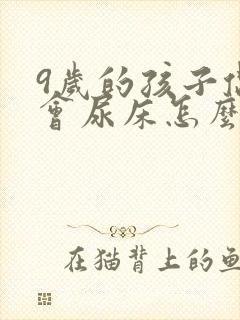 9歲的孩子
會尿床怎麼
在猫背上的鱼